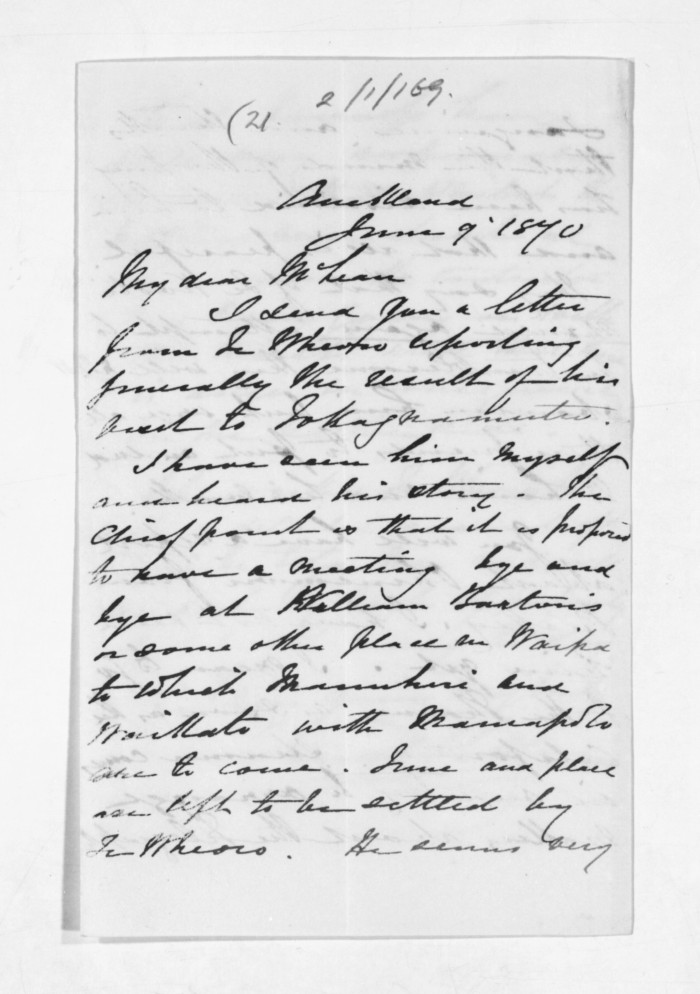 2/1/169.
(21
Auckland
June 9. 1870
My dear McLean
I send you a letter
from Te Wheoro reporting
generally the result of his
visit to Tokagnamutu.
I have seen him myself
and heard his story. The
chief point is that it is proposed
to have a meeting bye and
bye at William
or some other place in Waipa
to which Manuhiri and
Waikato with Maniapoto
are to come. Time and place
are left to be settled by
Te Wheoro. He seems very